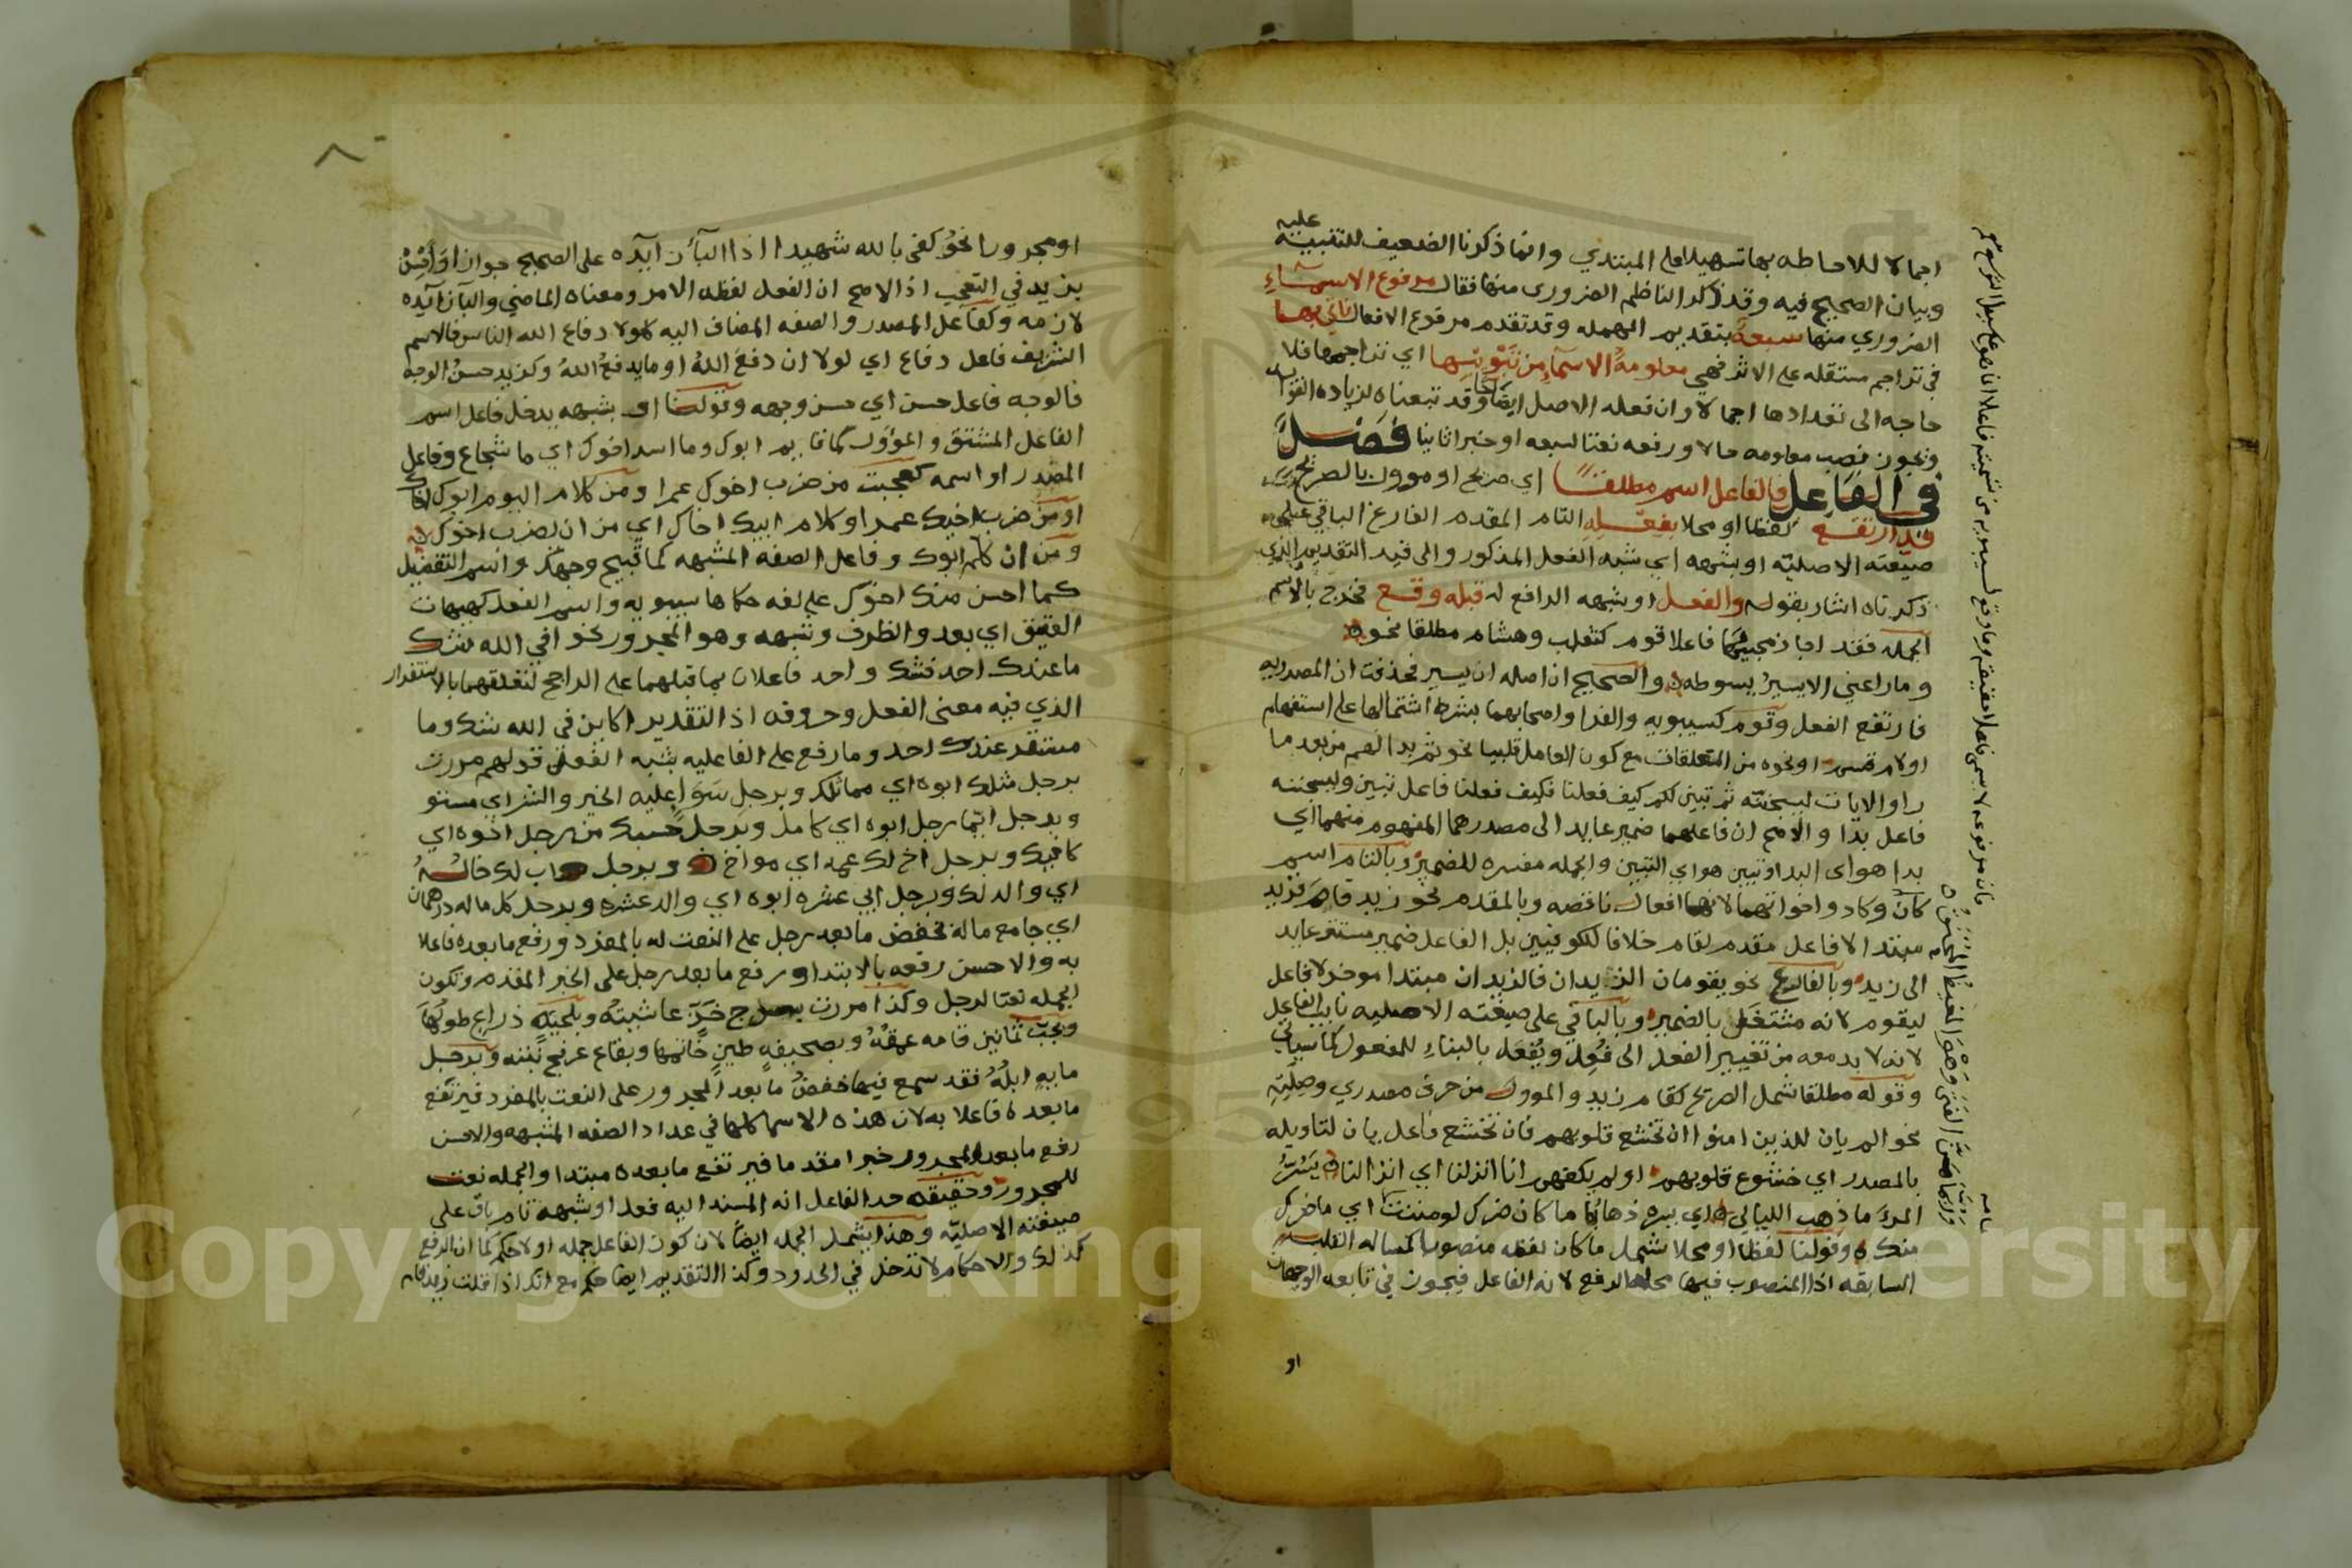 اجمالا للاحاطه بها تسهيلا على المبتدي وانما ذكرنا الضعيف للتنبيه عليه
وبيان الصحيح فيه وقد ذكر الناظم الضروري منها فقال مرفوع الاسماء
الضروري منها سبعة بتقديم المهمله وقد تقدم مرفوع الافعال ناتي بها
في تراجم مستقله على الاثر فهي معلومة الاسماء من تبويبها اي تراجمها فلا
حاجه الى تعدادها اجمالا وان فعله الاصل ايضا وقد تبعناه لزياده الفوا
ويجوز نصب معلومه حالا ورفعه نعتا لسبعه او خبرا ثانيا فصل
في الفاعل فالفاعل اسم مطلقا اي صريح او موول بالصريح
قد ارتفع لفظا او محلا بفعله التام المقدم الفارغ الباقي على
صيغته الاصليه او بشبهه اي شبه الفعل المذكور والى قيد التقديم الذي
ذكرناه اشار بقوله والفعل او شبهه الرافع له قبله وقع فخرج بالاسم
الجمله فقد اجاز مجيئها فاعلا قوم كثعلب وهشام مطلقا نحو
وما راعني الا يسير بسوطه والصحيح ان اصله ان يسير فحذفت ان المصدريه
فارتفع الفعل وقوم كسيبويه والفرا واصحابهما بشرط اشتمالها على استفهام
او لام قسم او نحوه من المتعلقات مع كون العامل قلبيا نحو ثم بدا لهم من بعد ما
راوا الايات ليسجننه ثم تبين لكم كيف فعلنا فكيف فعلنا فاعل تبين وليسجننه
فاعل بدا والاصح ان فاعلهما ضمير عايد الى مصدرهما المفهوم منهما اي
بدا هو اي البدا وتبين هو اي التبين والجمله مفسره للضمير وبالتام اسم
كان وكاد واخواتهما لانها افعال ناقصه وبالمقدم نحو زيد قام فزيد
مبتدا لا فاعل مقدم لقام خلافا للكوفيين بل الفاعل ضمير مستتر عايد
الى زيد وبالفارغ نحو يقومان الزيدان فالزيدان مبتدا موخر لا فاعل
ليقوم لانه مشتغل بالضمير وبالباقي على صيغته الاصليه نايب الفاعل
لانه لا بد معه من تغيير الفعل الى فعل ويفعل بالبناء للمفعول كما سياتي
وقوله مطلقا شمل الصريح كقام زيد والموول من حرف مصدري وصلته
نحو الم يان للذين امنوا ان تخشع قلوبهم فان تخشع فاعل يان لتاويله
بالمصدر اي خشوع قلوبهم اولم يكفهم انا انزلنا اي انزالنا يسر
المرء ما ذهب الليالي اي يسره ذهابها ما كان ضرك لو مننت اي ما ضرك
منك وقولنا لفظا او محلا شمل ما كان لفظه منصوبا كمساله القلب
السابقه اذ المنصوب فيها محله الرفع لانه الفاعل فيجوز في تابعه الوجهان
او
او مجرورا نحو كفى بالله شهيدا اذ الباء زايده على الصحيح
بزيد في التعجب اذ الاصح ان الفعل لفظه الامر ومعناه الماضي والبا زايده
لازمه وكفاعل المصدر والصفه المضاف اليه كلولا دفاع الله الناس فالاسم
الشريف فاعل دفاع اي لولا ان دفع الله او ما يدفع الله وكزيد حسن الوجه
فالوجه فاعل حسن اي حسن وجهه وقولنا او بشبهه يدخل فاعل اسم
الفاعل المشتق والمؤول كما قايم ابوك وما اسد اخوك اي ما شجاع وفاعل
المصدر او اسمه كعجبت من ضرب اخوك عمرا ومن كلام اليوم ابوك اخاك
او من ضرب اخيك عمرا وكلام ابيك اخاك اي من ان ضرب اخوك
ومن ان كلم ابوك وفاعل الصفه المشبهه كما قبيح وجهك واسم التفضيل
كما احسن منك اخوك على لغه حكاها سيبويه واسم الفعل كهيهات
العقيق اي بعد والظرف وشبهه وهو المجرور نحو افي الله شك
ما عندك احد فشك واحد فاعلان بما قبلهما على الراجح لتعلقهما بالاستقرار
الذي فيه معنى الفعل وحروفه اذ التقدير اكاين في الله شك وما
مستقر عندك احد ومما رفع على الفاعليه بشبه الفعل قولهم مررت
برجل مثلك ابوه اي مماثلك وبرجل سواء عليه الخير والشر اي مستو
وبرجل ايما رجل ابوه اي كامل وبرجل حسبك من رجل اخوه اي
كافيك وبرجل اخ لك عمه اي مواخ لك وبرجل اب لك خاله
اي والد لك وبرجل ابي عشره ابوه اي والد عشره وبرجل كل ماله درهمان
اي جامع ماله فخفض ما بعد رجل على النعت له بالمفرد ورفع ما بعده فاعلا
به والاحسن رفعه بالابتدا ورفع ما بعد رجل على الخبر المقدم وتكون
الجمله نعتا لرجل وكذا مررت بسرج خز عاشيته وبحية ذراع طولها
وبجب ثمانين قامه عمقه وبصحيفه طين خاتمها وبقاع عرفج نبته وبرجل
مايه ابله فقد سمع فيها خفض ما بعد المجرور على النعت بالمفرد فيرتفع
ما بعده فاعلا به لان هذه الاسما كلها في عداد الصفه المشبهه والاحسن
رفع ما بعد المجرور خبرا مقدما فيرتفع ما بعده مبتدا والجمله نعت
للمجرور وحقيقه حد الفاعل انه المسند اليه فعل او شبهه تام باق على
صيغته الاصليه وهذا يشمل الجمله ايضا لان كون الفاعل جمله او لا حكم كما ان الرفع
كذلك والاحكام لا تدخل في الحدود وكذا التقديم ايضا حكم مع انك اذا قلت زيد قام
Copyright © King Saud University